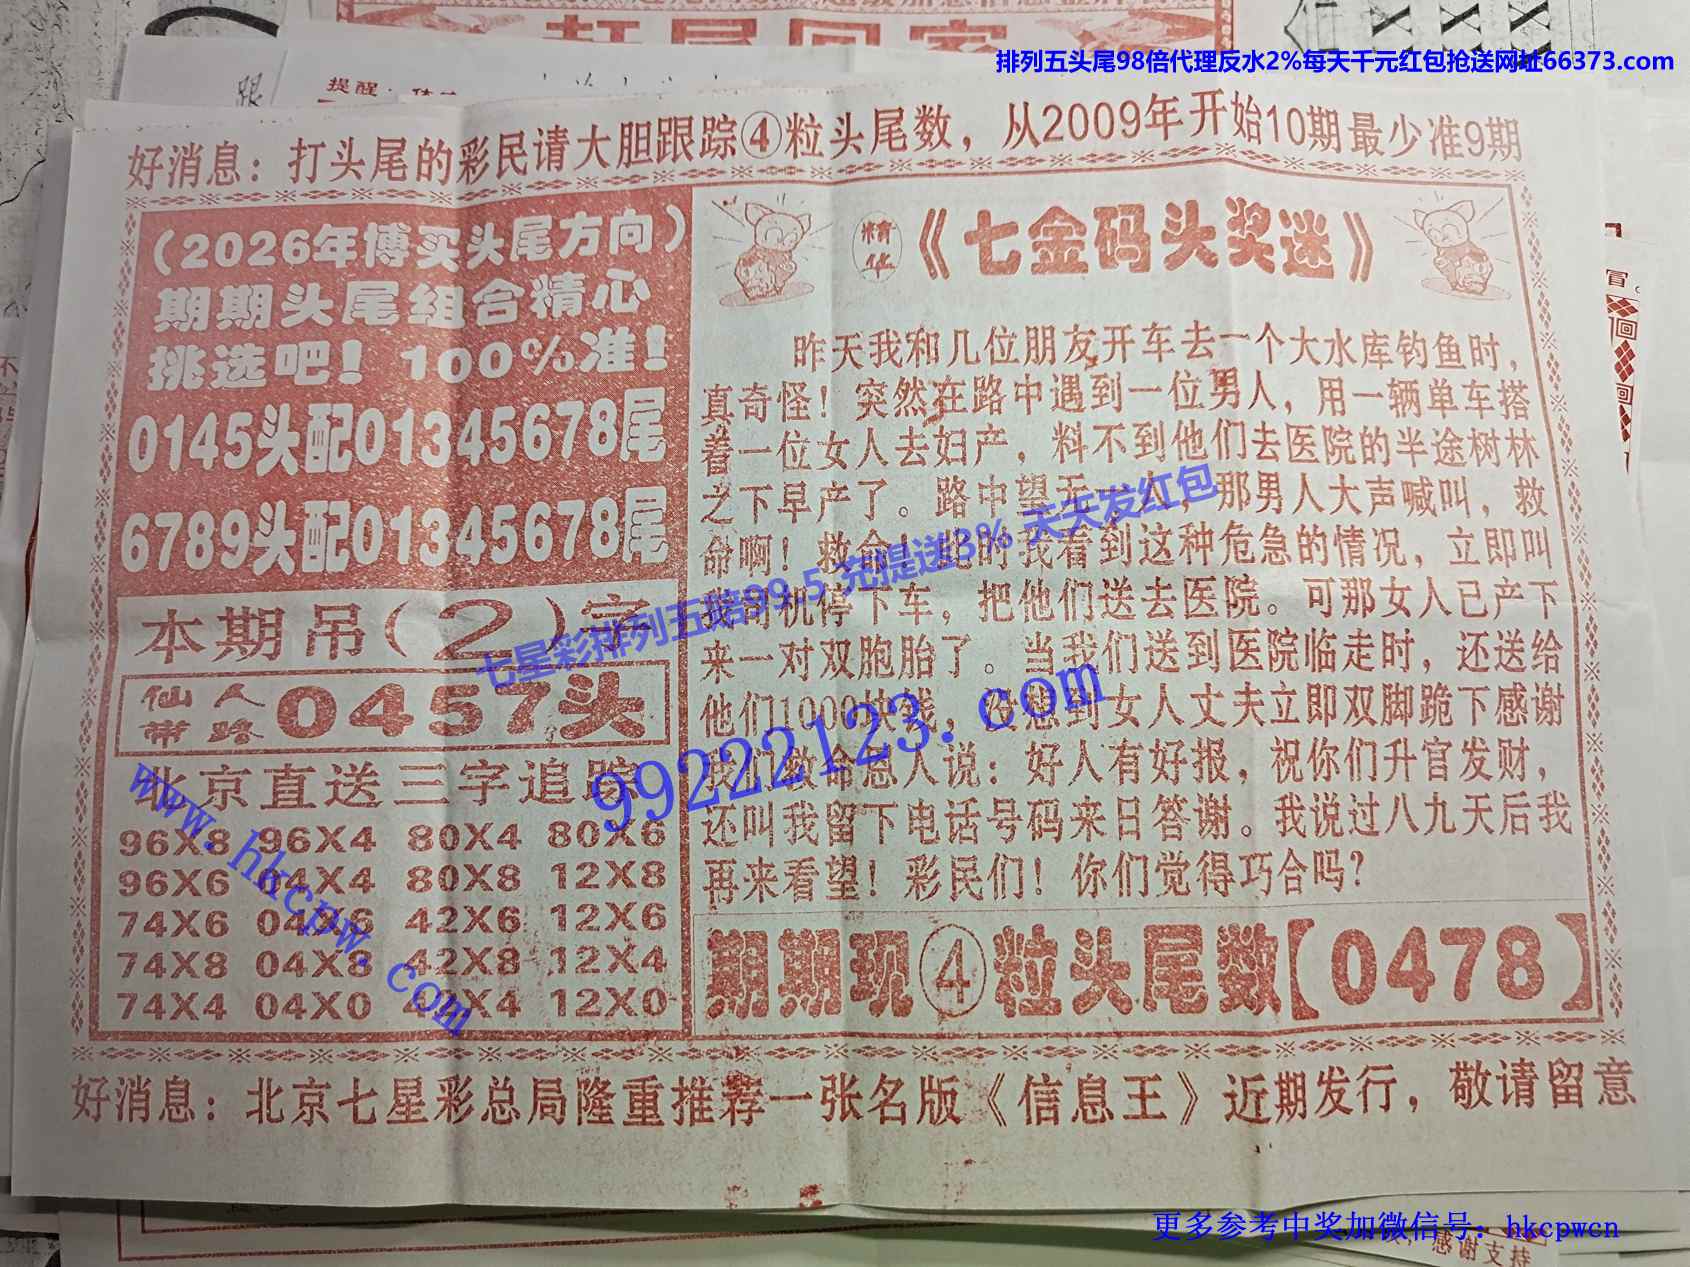 打尾回家
排列五头尾98倍代理反水2%每天千元红包抢送网址66373.com
提醒:
好消息：打头尾的彩民请大胆跟踪④粒头尾数，从2009年开始10期最少准9期
（2026年博买头尾方向）
期期头尾组合精心
挑选吧！100%准！
0145头配01345678尾
6789头配01345678尾
本期吊(2)字
仙人带路 0457头
北京直送三字追踪
96X8 96X4 80X4 80X6
96X6 04X4 80X8 12X8
74X6 04X6 42X6 12X6
74X8 04X8 42X8 12X4
74X4 04X0 42X4 12X0
精华《七金码头奖迷》
昨天我和几位朋友开车去一个大水库钓鱼时，
真奇怪！突然在路中遇到一位男人，用一辆单车搭
着一位女人去妇产，料不到他们去医院的半途树林
之下早产了。路中望无一人，那男人大声喊叫，救
命啊！救命！此时我看到这种危急的情况，立即叫
我司机停下车，把他们送去医院。可那女人已产下
来一对双胞胎了。当我们送到医院临走时，还送给
他们1000块钱，没想到女人丈夫立即双脚跪下感谢
我们救命恩人说：好人有好报，祝你们升官发财，
还叫我留下电话号码来日答谢。我说过八九天后我
再来看望！彩民们！你们觉得巧合吗？
期期现④粒头尾数【0478】
好消息：北京七星彩总局隆重推荐一张名版《信息王》近期发行，敬请留意
七星彩排列五赔99.5 充提送3% 天天发红包
99222123.com
www.hkcpw.com
更多参考中奖加微信号：hkcpwcn
感谢支持